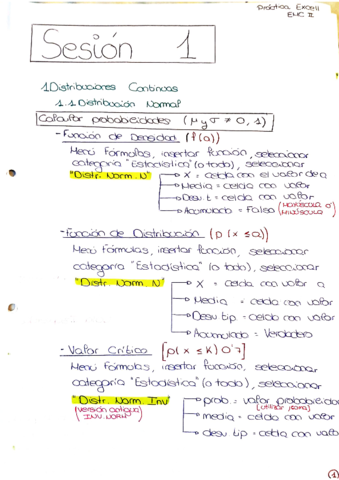 Práctica Excel
ENC II
Sesión 1
1 Distribuciones Continuas
1.1 Distribución Normal
Calcular probabilidades (μ y σ ≠ 0, 1)
- Función de Densidad (f(a))
Menú Fórmulas, insertar función, seleccionar
categoría "Estadística" (o todo), seleccionar
"Distr. Norm. N" → X = celda con el valor de a
→ Media = celda con valor
→ Desv t = celda con valor
→ Acumulado = Falso (Mayúscula o Minúscula)
- Función de Distribución (p (x ≤ a))
Menú fórmulas, insertar función, seleccionar
categoría "Estadística" (o todo), seleccionar
"Distr. Norm. N" → X = celda con valor a
→ Media = celda con valor
→ Desv tip = celda con valor
→ Acumulado = Verdadero
- Valor Crítico [p(x ≤ k) 0'7]
Menú Fórmulas, insertar función, seleccionar
categoría "Estadística" (o todo), seleccionar
"Distr. Norm. Inv" → prob. = valor probabilidad
(versión antigua INV NORM) (utilizar coma)
→ media = celda con valor
→ desv tip = celda con valor
1